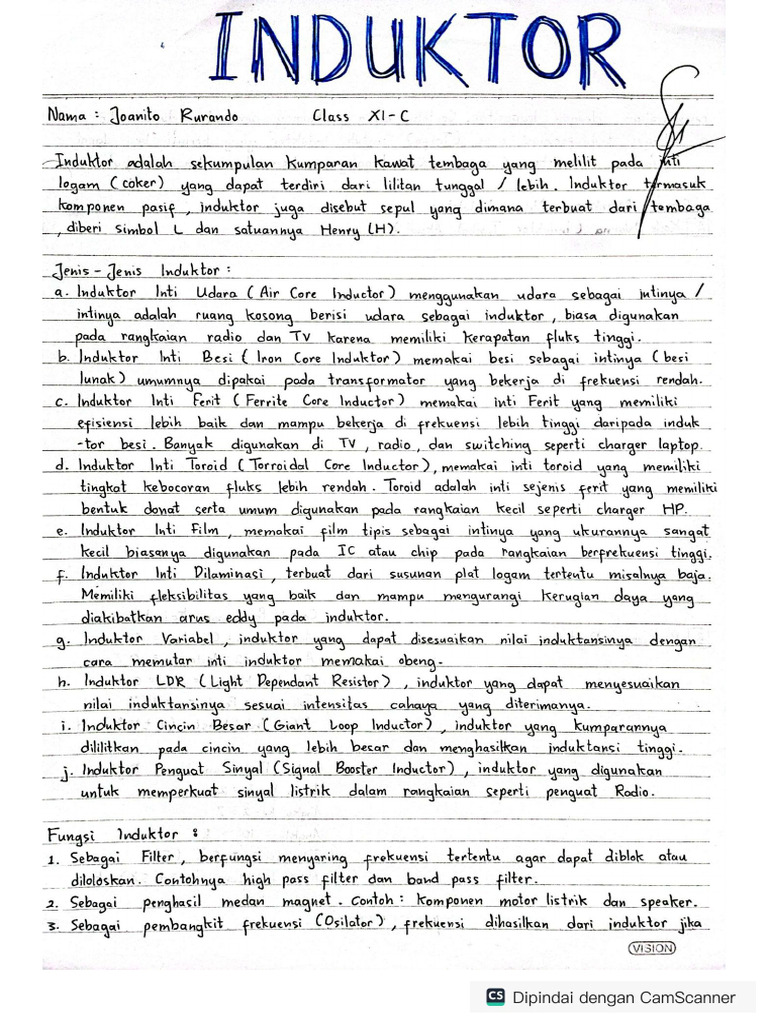 INDUKTOR
Nama : Joanito Rurando Class XI-C
Induktor adalah sekumpulan kumparan kawat tembaga yang melilit pada inti
logam (coker) yang dapat terdiri dari lilitan tunggal / lebih. Induktor termasuk
komponen pasif, induktor juga disebut sepul yang dimana terbuat dari tembaga
, diberi simbol L dan satuannya Henry (H).
Jenis-Jenis Induktor :
a. Induktor Inti Udara (Air Core Inductor) menggunakan udara sebagai intinya /
intinya adalah ruang kosong berisi udara sebagai induktor, biasa digunakan
pada rangkaian radio dan TV karena memiliki kerapatan fluks tinggi.
b. Induktor Inti Besi (Iron Core Induktor) memakai besi sebagai intinya (besi
lunak) umumnya dipakai pada transformator yang bekerja di frekuensi rendah.
c. Induktor Inti Ferit (Ferrite Core Inductor) memakai inti Ferit yang memiliki
efisiensi lebih baik dan mampu bekerja di frekuensi lebih tinggi daripada induk
-tor besi. Banyak digunakan di TV, radio, dan switching seperti charger laptop.
d. Induktor Inti Toroid (Torroidal Core Inductor), memakai inti toroid yang memiliki
tingkat kebocoran fluks lebih rendah. Toroid adalah inti sejenis ferit yang memiliki
bentuk donat serta umum digunakan pada rangkaian kecil seperti charger HP.
e. Induktor Inti Film, memakai film tipis sebagai intinya yang ukurannya sangat
kecil biasanya digunakan pada IC atau chip pada rangkaian berfrekuensi tinggi.
f. Induktor Inti Dilaminasi, terbuat dari susunan plat logam tertentu misalnya baja.
Memiliki fleksibilitas yang baik dan mampu mengurangi kerugian daya yang
diakibatkan arus eddy pada induktor.
g. Induktor Variabel, induktor yang dapat disesuaikan nilai induktansinya dengan
cara memutar inti induktor memakai obeng.
h. Induktor LDR (Light Dependant Resistor), induktor yang dapat menyesuaikan
nilai induktansinya sesuai intensitas cahaya yang diterimanya.
i. Induktor Cincin Besar (Giant Loop Inductor), induktor yang kumparannya
dililitkan pada cincin yang lebih besar dan menghasilkan induktansi tinggi.
j. Induktor Penguat Sinyal (Signal Booster Inductor), induktor yang digunakan
untuk memperkuat sinyal listrik dalam rangkaian seperti penguat Radio.
Fungsi Induktor :
1. Sebagai Filter, berfungsi menyaring frekuensi tertentu agar dapat diblok atau
diloloskan. Contohnya high pass filter dan band pass filter.
2. Sebagai penghasil medan magnet. contoh : komponen motor listrik dan speaker.
3. Sebagai pembangkit frekuensi (Osilator), frekuensi dihasilkan dari induktor jika
VISION
CS Dipindai dengan CamScanner